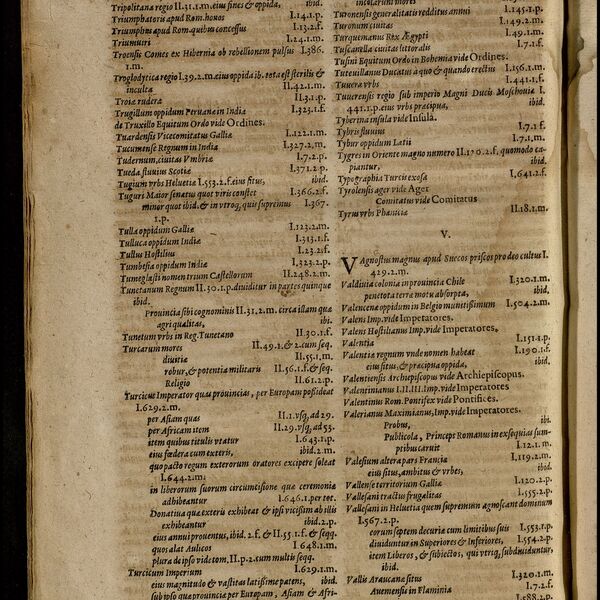 Tripolitana regio II.31.1.m. eius fines & oppida, ibid.
Triumphatorij apud Rom. honos I.14.1.p.
Triumphus apud Rom. quibus concessus I.13.2.f.
Triumuiri I.24.1.m.
Troensis Comes ex Hibernia ob rebellionem pulsus I.386.
1.m.
Troglodytica regio I.39.2.m. eius oppida ib. tota est sterilis &
inculta II.42.1.m.
Troiæ rudera II.3.1.p.
Trugillum oppidum Peruanæ in India I.323.1.f.
de Truxillo Equitum Ordo vide Ordines.
Tuardensis Vicecomitatus Galliæ I.122.1.m.
Tucumense Regnum in India I.327.2.m.
Tudernum, ciuitas Vmbriæ I.7.2.p.
Tueda fluuius Scotiæ I.371.2.p.
Tugium vrbs Helueticæ I.553.2.f. eius situs, ibid.
Tuguri Maior senatus quot viris constet I.366.2.f.
minor quot ibid. & in vtroq. quis supremus I.367.
1.p.
Tulla oppidum Galliæ I.123.2.m.
Tulluca oppidum Indiæ I.313.1.f.
Tullus Hostilius I.23.2.f.
Tumbesia oppidum Indiæ I.323.2.p.
Tumeglasti nomen trium Castellorum II.248.2.m.
Tunetanum Regnum II.30.1.p. diuiditur in partes quinque
ibid.
Prouincia sibi cognominis II.31.2.m. circa illam quæ
agri qualitas, ibi.
Tunetum vrbs in Reg. Tunetano II.30.1.f.
Turcarum mores II.49.2. & 2. cum seq.
diuitiæ II.55.1.m.
robur, & potentia militaris II.56.1.f. & seq.
Religio II.61.2.p.
Turcicus Imperator quas prouincias, per Europam possideat
I.629.2.m.
per Asiam quas II.1. vsq. ad 29.
per Africam item II.29. vsq. 53.
item quibus titulis vtatur I.643.1.p.
eius fœdera cum exteris, ibid. 2.m.
quo pacto regum exterorum oratores excipere soleat
I.644.2.m.
in liberorum suorum circumcisione quæ ceremoniæ
adhibeantur I.646.1. per tot.
Donatiua quæ exteris exhibeat & ipsi vicissim ab illis
exhibeantur ibid. 2.p.
eius annui prouentus, ibid. 2.f. & II.55.1.f. & seqq.
quos alat Aulicos I 648.1.m.
plura de ipso vide tom. II. p. 2. cum multis seqq.
Turcicum Imperium I.629.1.m.
eius magnitudo & vastitas latissime patens, ibid.
sub ipso quæ prouinciæ per Europam, Asiam & Afri-
incolarum mores ibid.
Turonensis generalitatis redditus annui I.145.1.p.
Turonum ciuitas I.149.2.m.
Turquemanus Rex Ægypti I.149.1.m.
Tuscanella ciuitas littoralis I.7.1.f.
Tusini Equitum Ordo in Bohemia vide Ordines.
Tuteuillanus Ducatus a quo & quando erectus I.156.1.m.
Tuuera vrbs I.441.1.f.
Tuuerensis regio sub imperio Magni Ducis Moschouiæ I.
441.1.p. eius vrbs præcipua, ibid.
Tyberina insula vide Insula.
Tybris fluuius I.7.1.f.
Tybur oppidum Latii I.7.1.m.
Tygres in Oriente magno numero II.120.2.f. quomodo ca-
piantur, ibid.
Typographia Turcis exosa I.641.2.f.
Tyrolensis ager vide Ager
Comitatus vide Comitatus
Tyrus vrbs Phæniciæ II.18.1.m.
V.
VAgnostus magnus apud Suecos priscos pro deo cultus I.
429.2.m.
Valdiuia colonia in prouincia Chile I.320.1.m.
pene tota terræ motu absorpta, ibid.
Valencenæ oppidum in Belgio munitissimum I.504.2.m.
Valens Imp. vide Imperatores.
Valens Hostilianus Imp. vide Imperatores.
Valentia I.151.1.p.
Valentiæ regnum vnde nomen habeat I.190.1.f.
eius situs, & præcipua oppida, ibid.
Valentiensis Archiepiscopus vide Archiepiscopus.
Valentinianus I.II.III. Imp. vide Imperatores
Valentinus Rom. Pontifex vide Pontifices.
Valerianus Maximianus, Imp. vide Imperatores.
Probus, ibi.
Publicola, Princeps Romanus in exsequias sum-
ptibus caruit I.12.1.m.
Valesium altera pars Franciæ I.119.2.m.
eius situs, ambitus & vrbes, ibid.
Vallense territorium Galliæ I.120.2.p.
Vallesani tractus frugalitas I.555.2.p.
Vallesani in Helueticæ quem supremum agnoscant dominum
I.567.2.p.
eorum septem decuriæ cum limitibus suis I.553.1.p.
diuiduntur in Superiores & Inferiores, I.554.2.p.
item Liberos, & subiectos, qui vtriq. subdiuiduntur,
ibid.
Vallis Araucana situs I.320.1.m.
Auemensis in Flaminia I.7.2.f.
I.588.2.p.